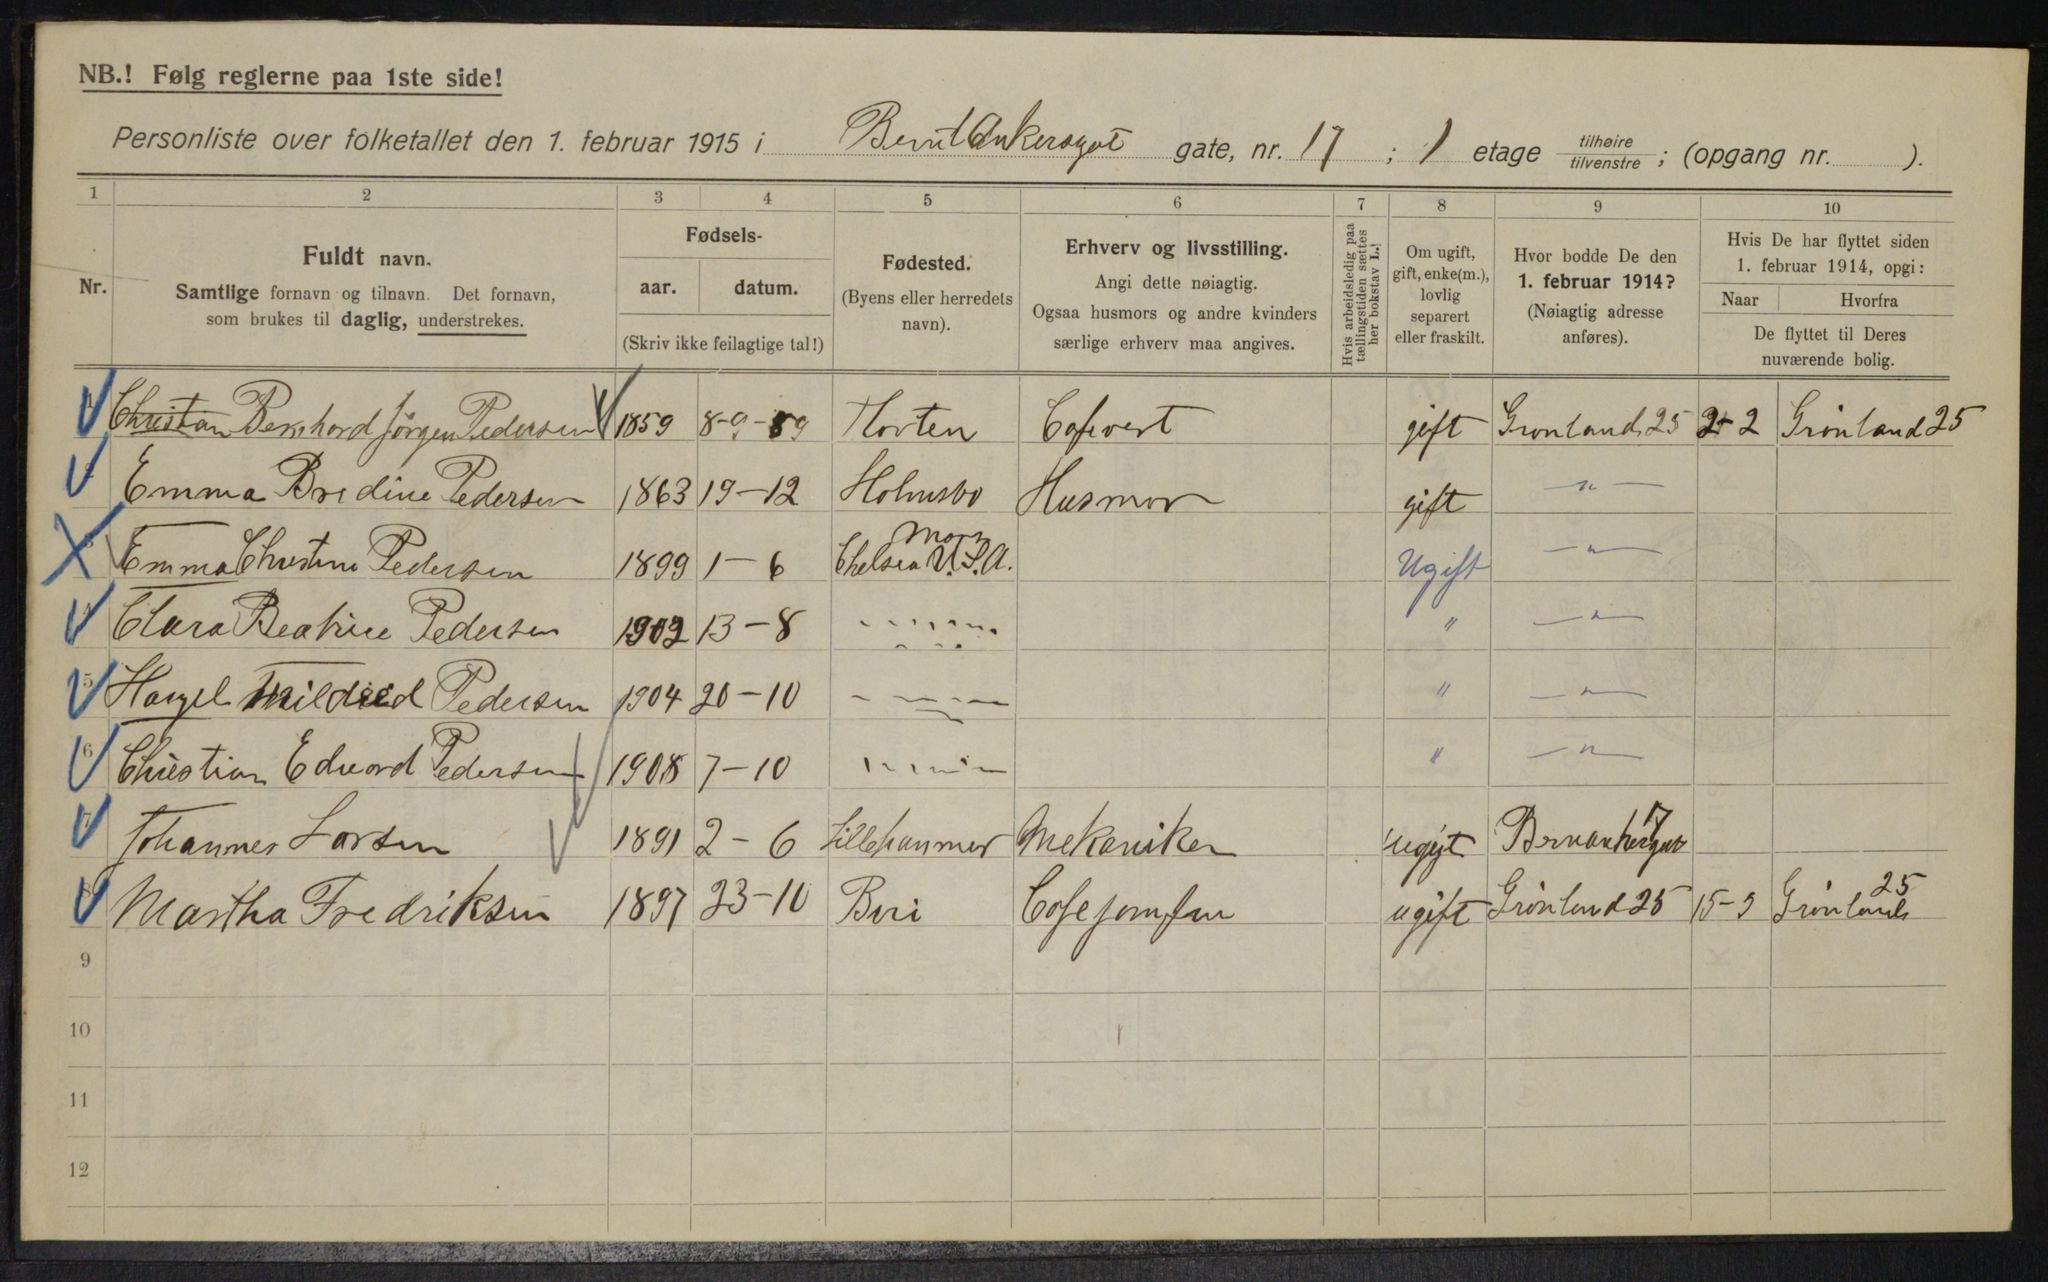 NB.! Følg reglerne paa 1ste side!
Personliste over folketallet den 1. februar 1915 i Bernt Ankersgat gate, nr. 17 ; 1 etage tilhøire tilvenstre ; (opgang nr. ).
1 2 3 4 5 6 7 8 9 10
Nr.
Fuldt navn.
Samtlige fornavn og tilnavn. Det fornavn,
som brukes til daglig, understrekes.
Fødsels-
aar. datum.
(Skriv ikke feilagtige tal!)
Fødested.
(Byens eller herredets
navn).
Erhverv og livsstilling.
Angi dette nøiagtig.
Ogsaa husmors og andre kvinders
særlige erhverv maa angives.
Hvis arbeidsledig paa
tællingstiden sættes
her bokstav L.!
Om ugift,
gift, enke(m.),
lovlig
separert
eller fraskilt.
Hvor bodde De den
1. februar 1914?
(Nøiagtig adresse
anføres).
Hvis De har flyttet siden
1. februar 1914, opgi:
Naar Hvorfra
De flyttet til Deres
nuværende bolig.
Christian Bernhard Jørgen Pedersen 1859 8-9-59 Horten Cafevert gift Grønland 25 2-2 Grønland 25
Emma Bredine Pedersen 1863 19-12 Holmsbo Husmor gift -"-
3 Emma Christine Pedersen 1899 1-6 Chelsea Mass U.S.A. Ugift -"-
4 Clara Beatrice Pedersen 1902 13-8 " -"-
5 Hazel Mildred Pedersen 1904 20-10 " -"-
6 Christian Edward Pedersen 1908 7-10 " -"-
7 Johannes Larsen 1891 2-6 Lillehammer Mekaniker ugift 17
8 Martha Fredriksen 1897 23-10 Biri Cafejomfru ugift Grønland 25 15-9 Grønland 25
9
10
11
12